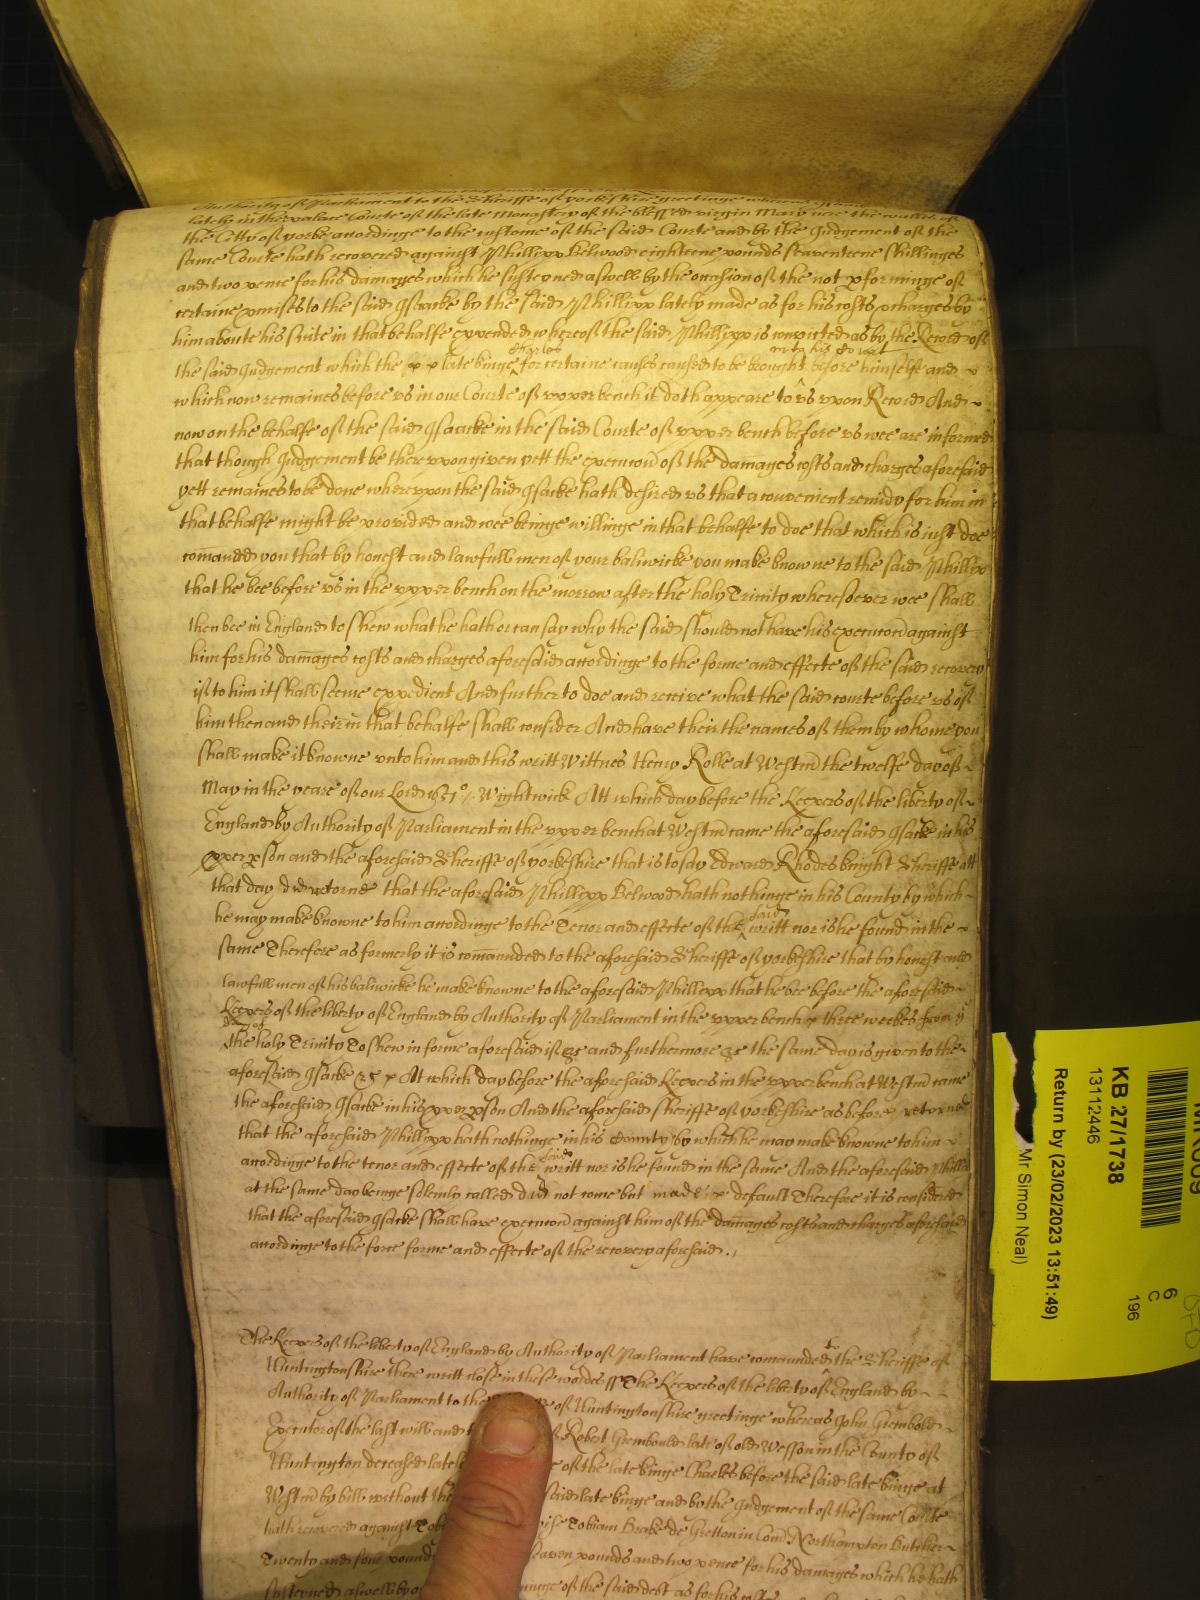 Authority of Parliament to the Sheriffe of Yorkeshire greetinge whereas
lately in the palace Courte of the late Monastery of the blessed virgin Mary nere the walls of
the Citty of yorke accordinge to the custome of the said Courte and by the Judgement of the
same Courte hath recovered against Phillipp Belwood eighteene pounds seaventeene shillinges
and two pence for his damages which he susteyned aswell by the occasion of the not pforminge of
certaine pmises to the said Isaacke by the said Phillipp lately made as for his costs & charges by
him aboute his suite in that behalfe expended whereof the said Phillipp is convicted as by the Record of
the said Judgement which the late kinge Charles for certaine causes caused to be brought into his Court before himselfe and
which now remaines before us in our Courte of upper bench it doth appeare to us uppon Record And
now on the behalfe of the said Isaacke in the said Courte of upper bench before us wee are informed
that though Judgement be thereuppon given yett the execucon of the damages costs and charges aforesaid
yett remaines to be done whereuppon the said Isaacke hath desired us that a convenient remidy for him in
that behalfe might be provided and wee beinge willinge in that behalfe to doe that which is just doe
comanded you that by honest and lawfull men of your baliwicke you make knowne to the said Phillipp
that he bee before us in the upper bench on the morrow after the holy Trinity wheresoever wee shall
then bee in England to shew what he hath or can say why the said should not have his execucon against
him for his damages costs and charges aforesaid accordinge to the forme and effecte of the said recovery
if to him it shall seeme expedient And further to doe and receive what the said courte before us of
him then and their in that behalfe shall consider And have their the names of them by whome you
shall make it knowne unto him and this writt Wittnes Henry Rolle at Westm the twelfe day of
May in the yeare of our Lord 1651 Wightwick Att which day before the Keepers of the liberty of
England by Authority of Parliament in the upper bench at Westm came the aforesaid Isaacke in his
pper pson and the aforesaid Sheriffe of yorkeshire that is to say Edward Rhodes knight Sheriffe att
that day did retorne that the aforesaid Phillipp Belwood hath nothinge in his County by which
he may make knowne to him accordinge to the Tenor and effecte of the said writt nor is he found in the
same Therefore as formerly it is comaunded to the aforesaid Sheriffe of yorkeshire that by honest and
lawfull men of his baliwicke he make knowne to the aforesaid Phillipp that he bee before the aforesaid
Keepers of the liberty of England by Authority of Parliament in the upper bench three weekes from
day of the holy Trinity To shew in forme aforesaid if &c and furthermore &c the same day is given to the
aforesaid Isaacke &c At which day before the aforesaid Keepers in the upper bench at Westm came
the aforesaid Isaacke in his pper pson And the aforesaid Sheriffe of yorkeshire as before returne
that the aforesaid Phillipp hath nothinge in his County by which he may make knowne to him
accordinge to the tenor and effecte of the said writt nor is he found in the same And the aforesaid Phillipp
at the same day beinge solemly called did not come but made default Therefore it is considered
that the aforesaid Isaacke shall have execucon against him of the damages costs and charges aforesaid
accordinge to the force forme and effecte of the recovery aforesaid
The Keepers of the liberty of England by Authority of Parliament have comaunded to the Sheriffe of
Huntingtonshire there writt close in these wordes ss The Keepers of the liberty of England by
Authority of Parliament to the of Huntingtonshire greetinge whereas John Grembold
Executor of the last will and Robert Grembould late of old Wesson in the County of
Huntington deceased late of the late kinge Charles before the said late kinge at
Westm by bill without the said late kinge and by the Judgement of the same Courte
hath recovered against Tobiam Brake de Gretton in Com Northampton Butcher
Twenty and four pound seaven pounds and two pence for his damages which he hath
susteyned aswell by of the said debt as for his
KB 27/1738
13112446
Return by (23/02/2023 13:51:49)
Mr Simon Neal)
6
C
196